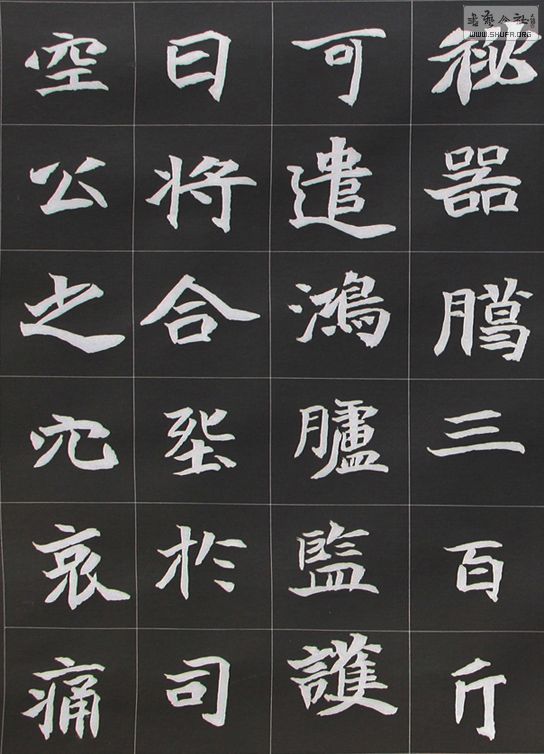 書藝公社
WWW.SHUFA.ORG
祕器三百斤
可遣鴻臚監護
日將合於司
空公之穴哀痛